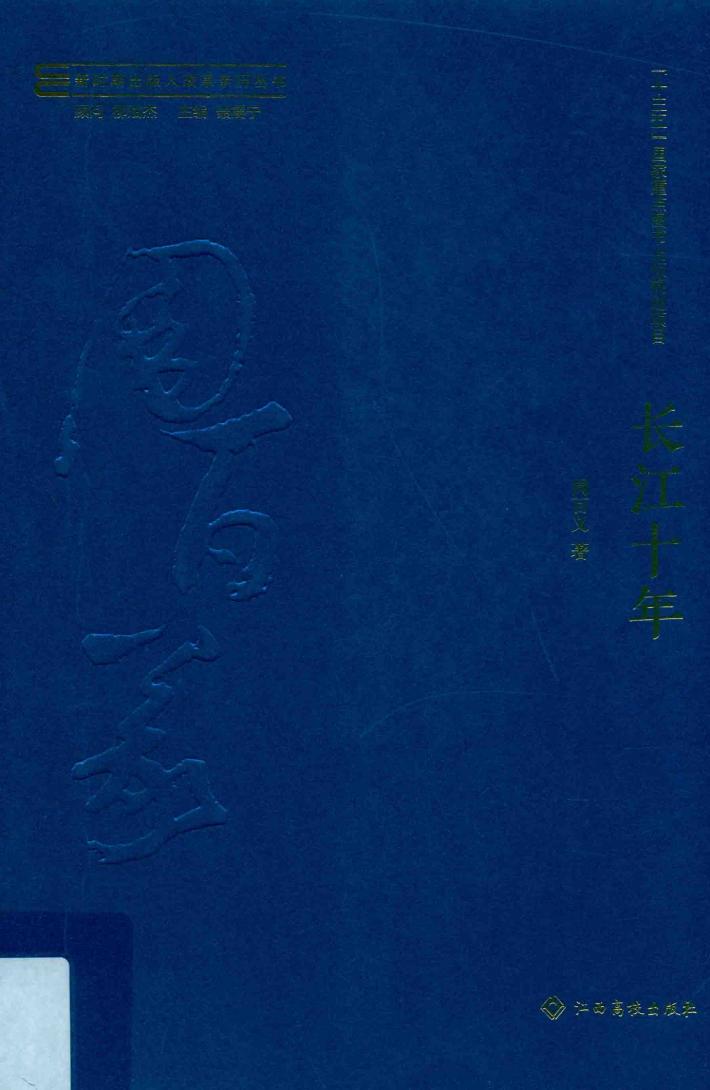 新时期出版人改革亲历丛书
顾问 柳斌杰 主编
「十三五」国家重点图书出版规划项目
长江十年
周百义 著
周百义
江西高校出版社